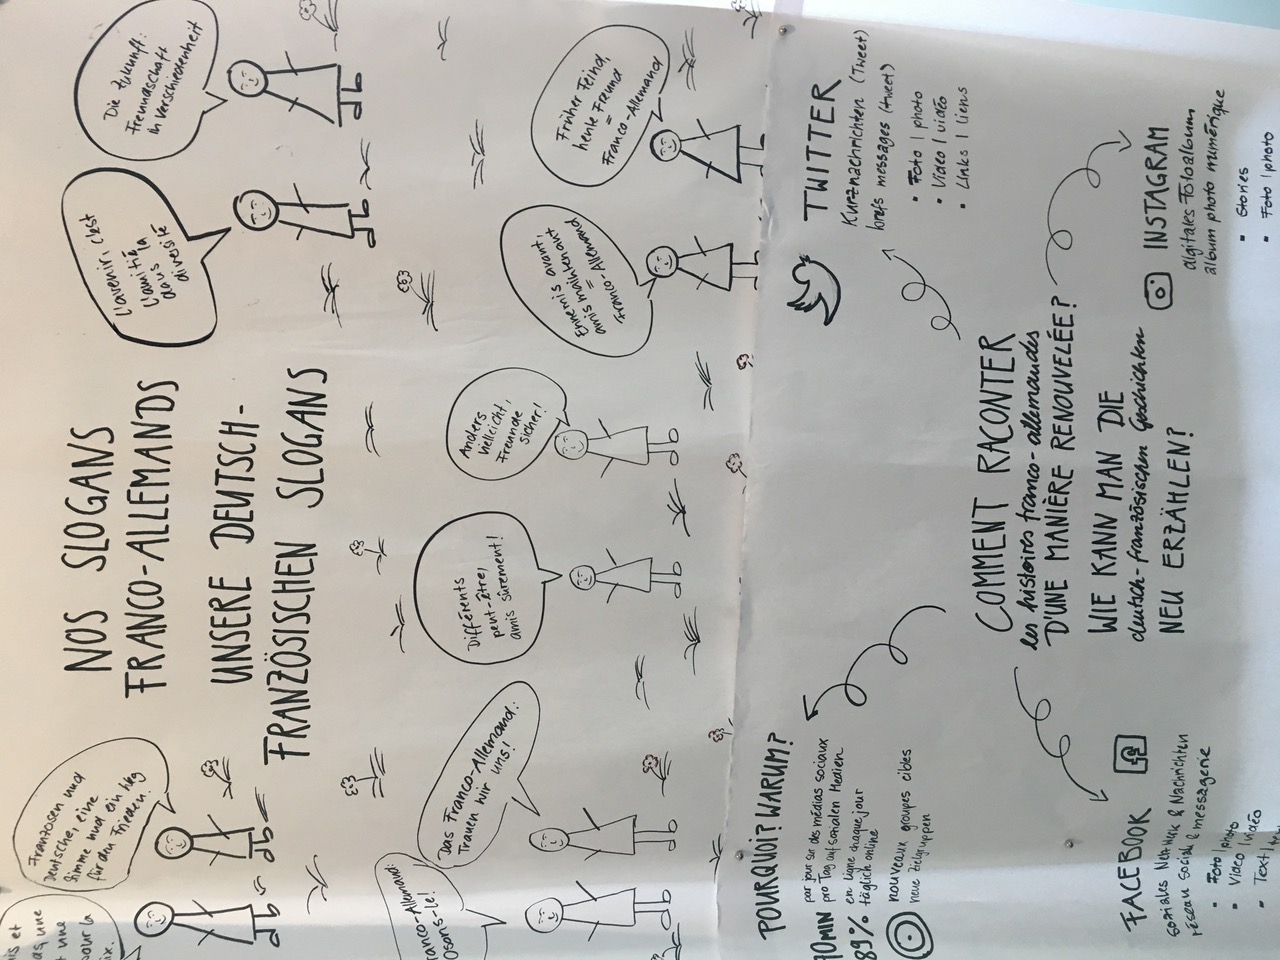 NOS SLOGANS
FRANCO-ALLEMANDS
UNSERE DEUTSCH-
FRANZÖSISCHEN SLOGANS
Franzosen und
Deutsche, eine
Stimme und ein Weg
für den Frieden.
L'avenir, c'est
l'amitié
dans la
diversité
Die Zukunft:
Freundschaft
in Verschiedenheit
Osons-le!
Das Franco-Allemand:
Trauen wir
uns!
Différents
peut-être,
amis sûrement!
Anders
vielleicht,
Freunde
sicher!
Ennemis avant,
amis maintenant
=
Franco-Allemand
Früher Feind,
heute Freund
=
Franco-Allemand
POURQUOI? WARUM?
par jour sur des médias sociaux
pro Tag auf sozialen Medien
89% en ligne chaque jour
täglich online
nouveaux groupes cibles
neue Zielgruppen
TWITTER
Kurznachrichten (Tweet)
brefs messages (tweet)
• Foto | photo
• Video | vidéo
• Links | liens
COMMENT RACONTER
les histoires franco-allemandes
D'UNE MANIÈRE RENOUVELÉE?
WIE KANN MAN DIE
deutsch-französischen Geschichten
NEU ERZÄHLEN?
FACEBOOK
soziales Netzwerk & Nachrichten
réseau social & messagerie
• Foto | photo
• Video | vidéo
• Text
INSTAGRAM
digitales Fotoalbum
album photo numérique
• Stories
• Foto | photo